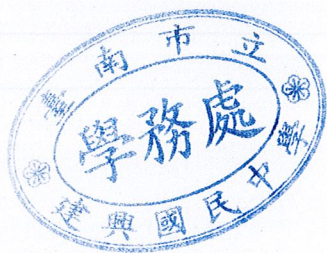 臺南市立
建興國民中學
學務處